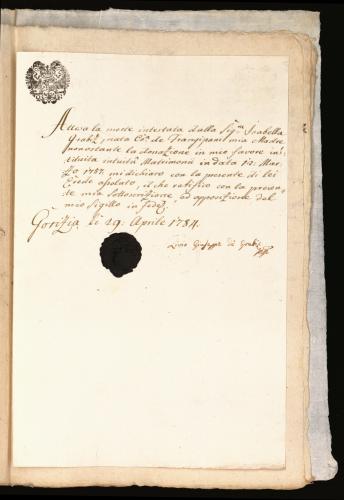 Attesa la morte intestata della Sigra Isabella
Grabiz, nata Cta de Frangipani mia Madre
nonostante la donazione in mio favore in¦
stituita intuitu Matrimonii in data 12. Mar¦
zo 1787. mi dichiaro con la presente di lei
Erede assoluto, il che ratifico con la presen¦
te mia sottoscrizione, ed apposizione del
mio sigillo in fede.
Gorizia li 29. Aprile 1784.
Livio Giuseppe de Grabiz